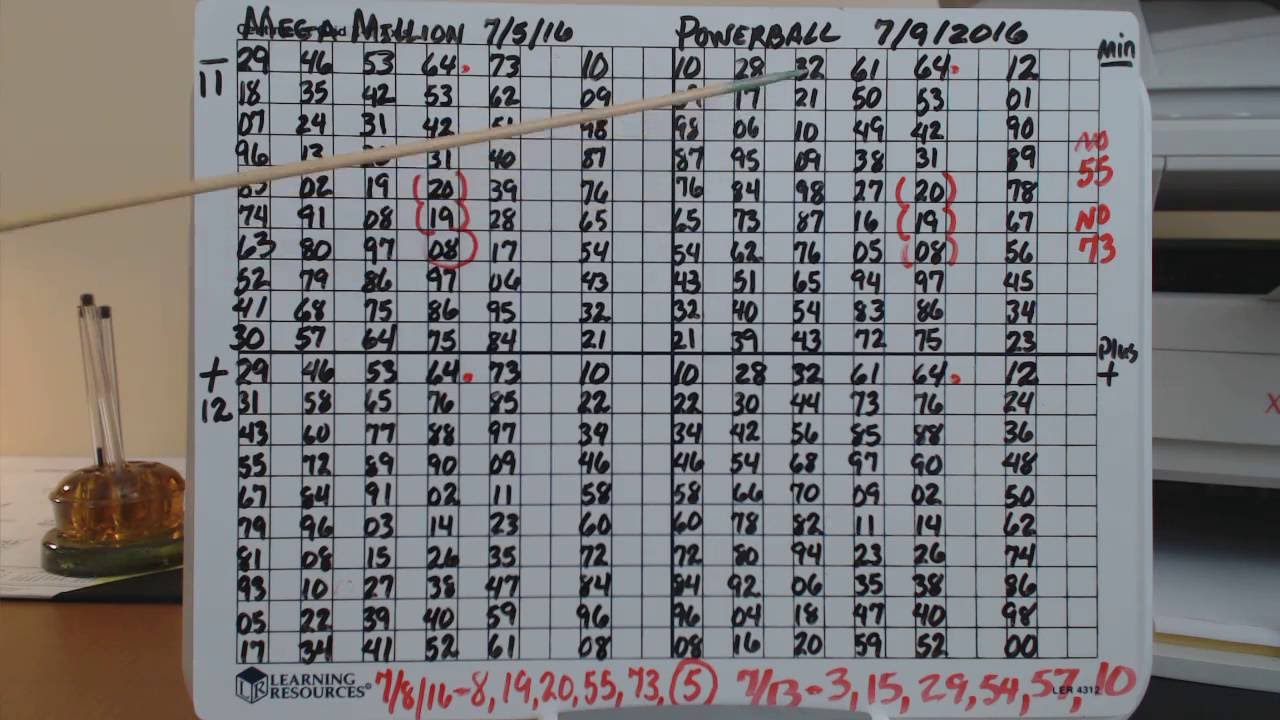 MEGA MILLION 7/5/16 POWERBALL 7/9/2016
Min
29 46 53 64. 73 10 10 28 32 61 64. 12
— 11
18 35 42 53 62 09 17 21 50 53 01
07 24 31 42 98 98 06 10 49 42 90
96 31 40 87 87 95 09 38 31 89
NO 55
02 19 (20) 39 76 76 84 98 27 (20) 78
74 91 08 (19) 28 65 65 73 87 16 (19) 67
NO 73
63 80 97 (08) 17 54 54 62 76 05 (08) 56
52 79 86 97 06 43 43 51 65 94 97 45
41 68 75 86 95 32 32 40 54 83 86 34
30 57 64 75 84 21 21 39 43 72 75 23
Plus +
+ 12
29 46 53 64. 73 10 10 28 32 61 64. 12
31 58 65 76 85 22 22 30 44 73 76 24
43 60 77 88 97 39 34 42 56 85 88 36
55 72 89 90 09 46 46 54 68 97 90 48
67 84 91 02 11 58 58 66 70 09 02 50
79 96 03 14 23 60 60 78 82 11 14 62
81 08 15 26 35 72 72 80 94 23 26 74
93 10 27 38 47 84 84 92 06 35 38 86
05 22 39 40 59 96 96 04 18 47 40 98
17 34 41 52 61 08 08 16 20 59 52 00
LEARNING
RESOURCES®
7/8/16-8, 19, 20, 55, 73, (5) 7/13-3, 15, 29, 54, 57, 10
LER 4312